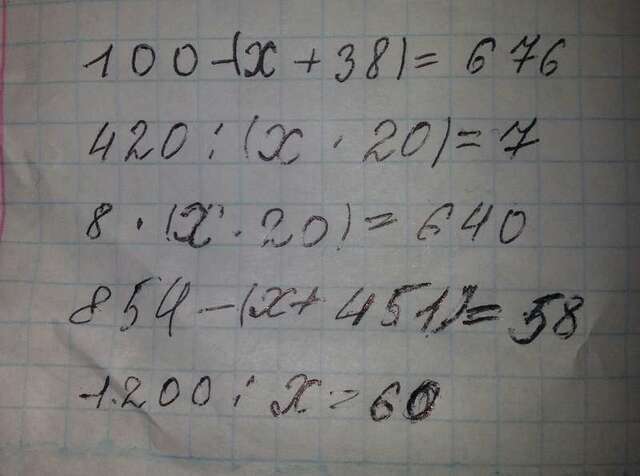 100-(x+38)=676
420:(x·20)=7
8·(x·20)=640
854-(x+451)=58
1200:x=60